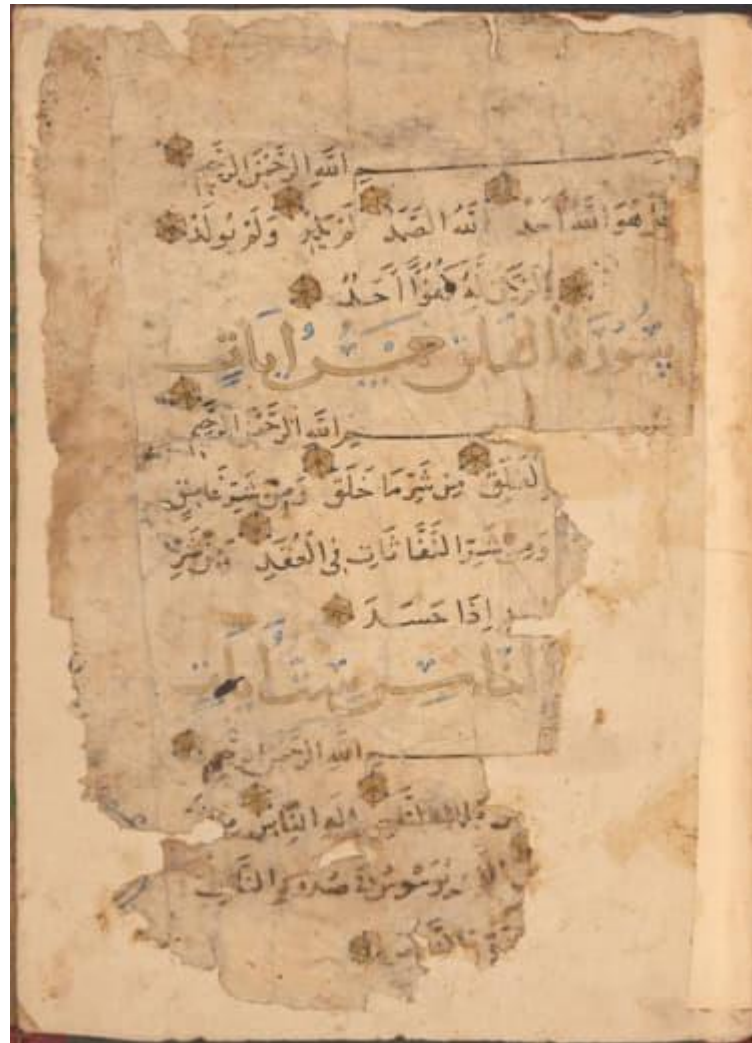 بسم الله الرحمن الرحيم
قل هو الله أحد الله الصمد لم يلد ولم يولد
ولم يكن له كفوا أحد
سورة الفلق خمس ايات
بسم الله الرحمن الرحيم
الفلق من شر ما خلق ومن شر غاسق
ومن شر النفاثات في العقد ومن شر
إذا حسد
الناس ست ايات
الله الرحمن الرحيم
الناس إله الناس من
يوسوس في صدور الناس